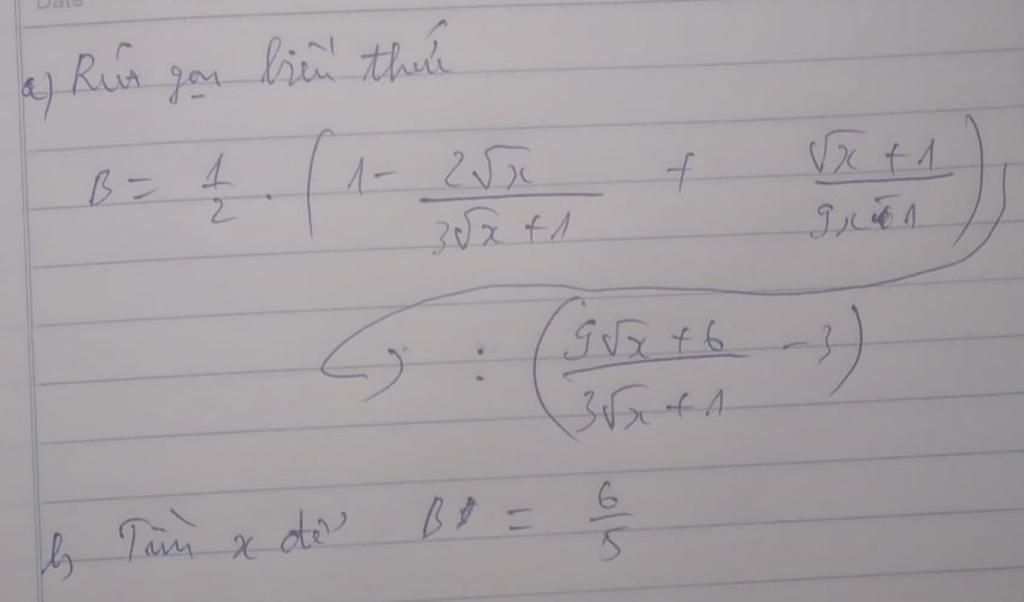 Date
a) Rút gọn biểu thức
B = \frac{1}{2} . ( 1 - \frac{2\sqrt{x}}{3\sqrt{x} + 1} + \frac{\sqrt{x} + 1}{9x - 1} )
: ( \frac{9\sqrt{x} + 6}{3\sqrt{x} + 1} - 3 )
b) Tìm x để B = \frac{6}{5}